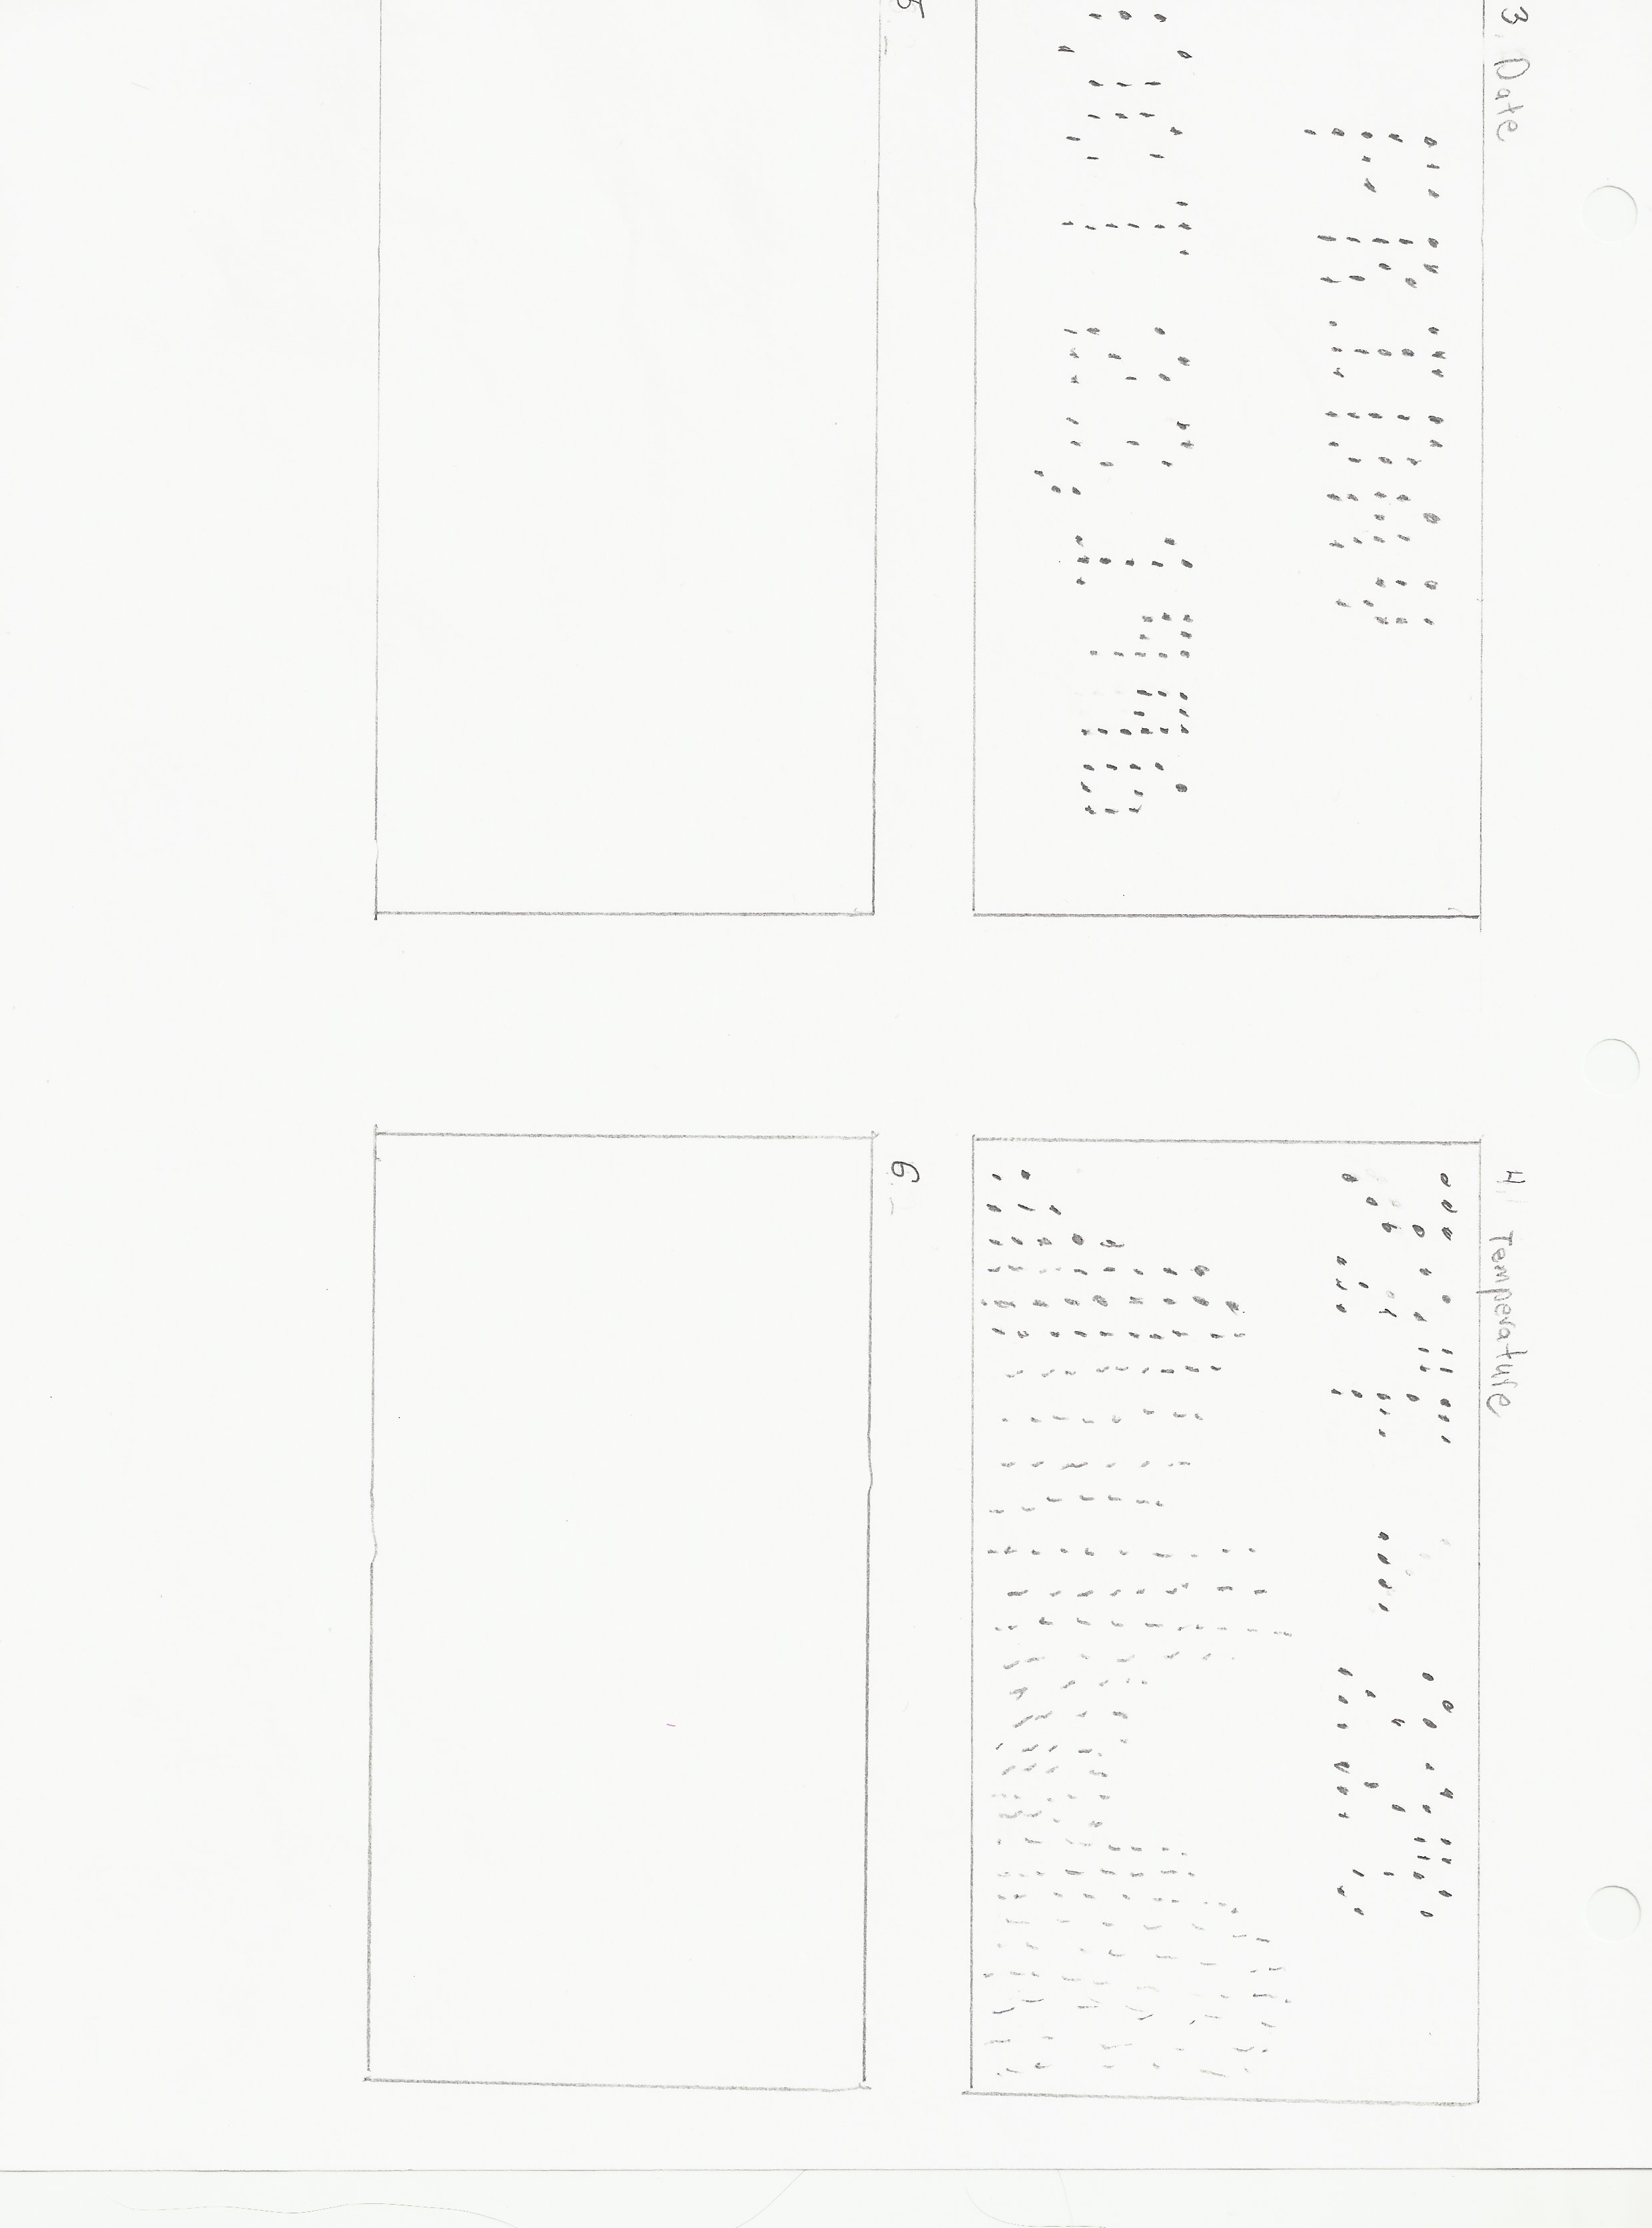 3. Date
FRIDAY
OCT 23, 1996
4. Temperature
72°F - 22°C
5.
6.